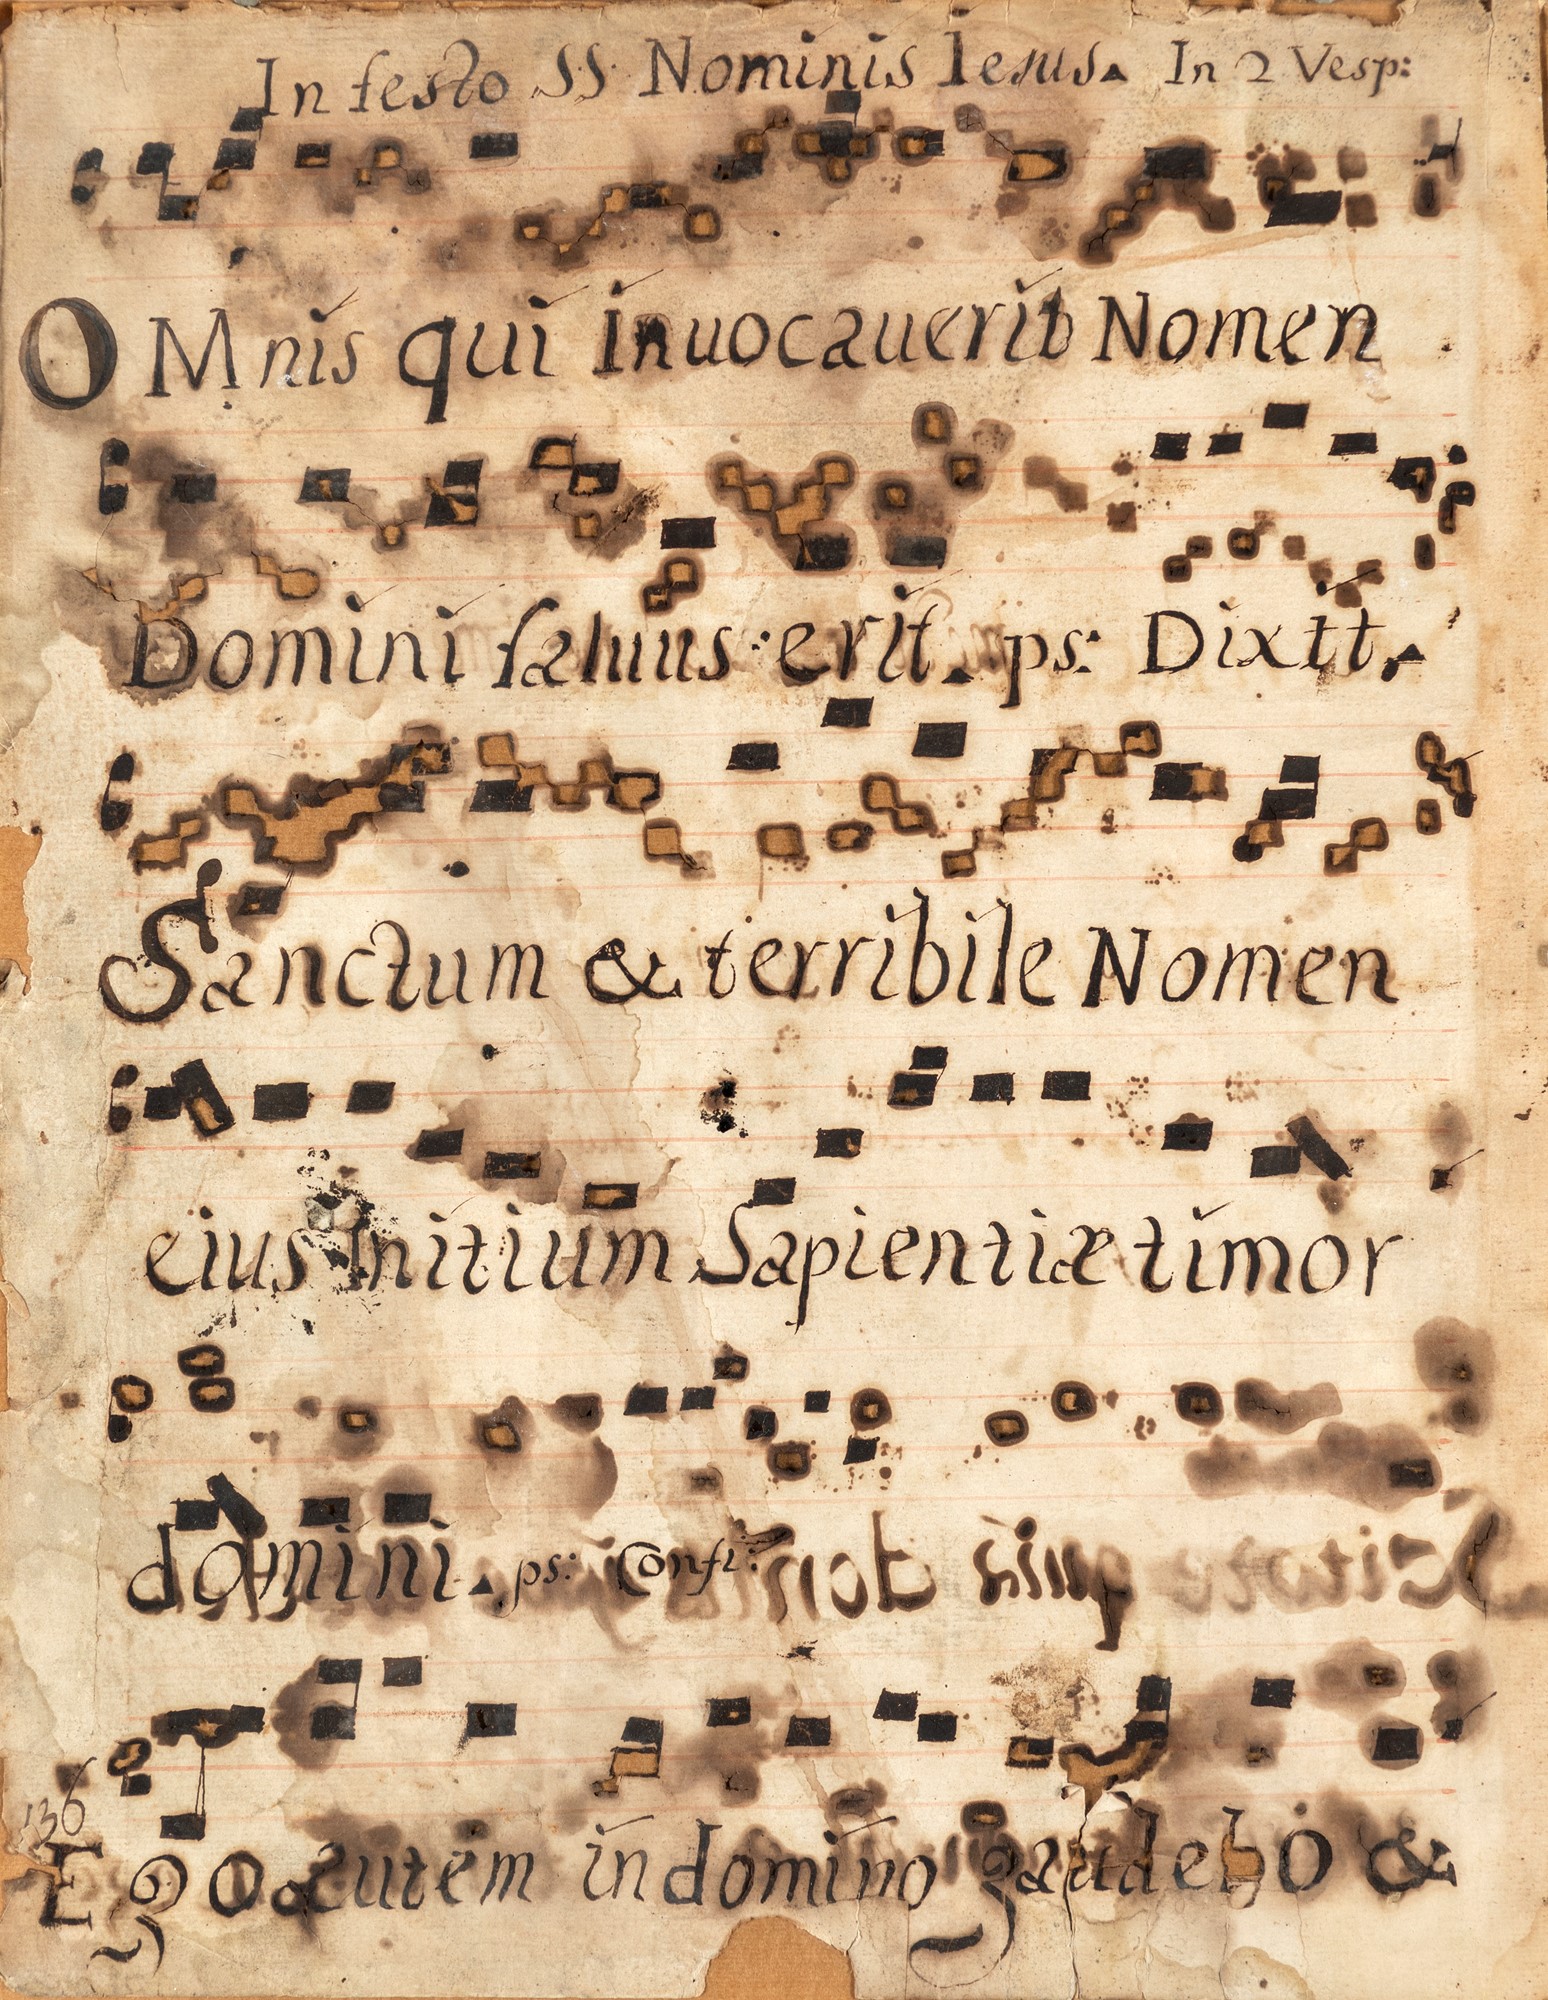 In festo SS. Nominis Iesus. In 2 Vesp:
OMnis qui inuocauerit Nomen
Domini saluus erit. ps: Dixit.
Sanctum & terribile Nomen
eius Initium Sapientiæ timor
domini. ps: Confi:
136
Ego autem in domino gaudebo &